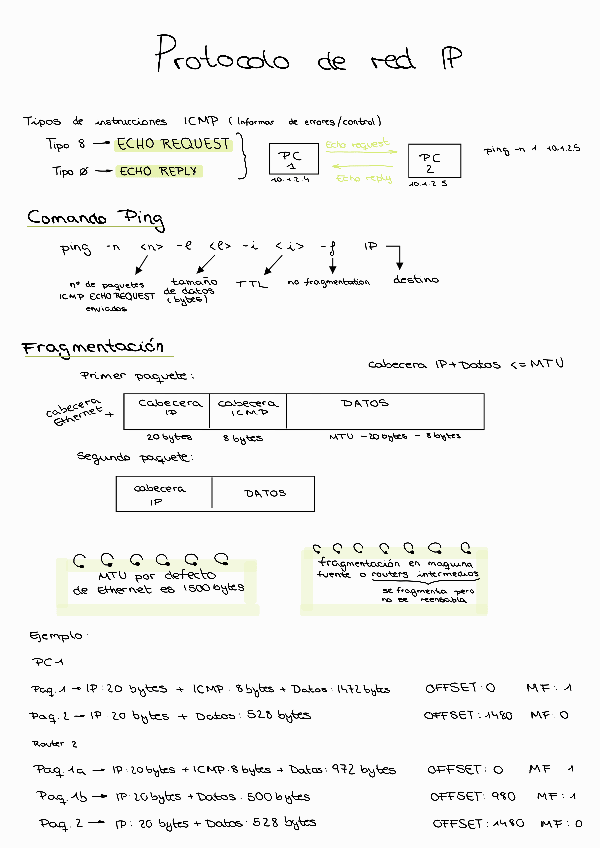 Protocolo de red IP
Tipos de instrucciones ICMP (Informar de errores/control)
Tipo 8 → ECHO REQUEST
Tipo 0 → ECHO REPLY
PC 1
10.1.2.4
Echo request
Echo reply
PC 2
10.1.2.5
ping -n 1 10.1.2.5
Comando Ping
ping -n <n> -l <l> -i <i> -f IP
nº de paquetes
ICMP ECHO REQUEST
enviados
tamaño
de datos
(bytes)
TTL
no fragmentation
destino
Fragmentación
cabecera IP+Datos <= MTU
Primer paquete:
cabecera
Ethernet +
cabecera
IP
cabecera
ICMP
DATOS
20 bytes
8 bytes
MTU - 20 bytes - 8 bytes
Segundo paquete:
cabecera
IP
DATOS
MTU por defecto
de Ethernet es 1500 bytes
fragmentación en maquina
fuente o routers intermedios
se fragmenta pero
no se reensabla
Ejemplo:
PC 1
Paq. 1 → IP: 20 bytes + ICMP: 8 bytes + Datos: 1472 bytes OFFSET: 0 MF: 1
Paq. 2 → IP 20 bytes + Datos: 528 bytes OFFSET: 1480 MF: 0
Router 2
Paq. 1a → IP: 20 bytes + ICMP: 8 bytes + Datos: 972 bytes OFFSET: 0 MF 1
Paq. 1b → IP: 20 bytes + Datos: 500 bytes OFFSET: 980 MF: 1
Paq. 2 → IP: 20 bytes + Datos: 528 bytes OFFSET: 1480 MF: 0